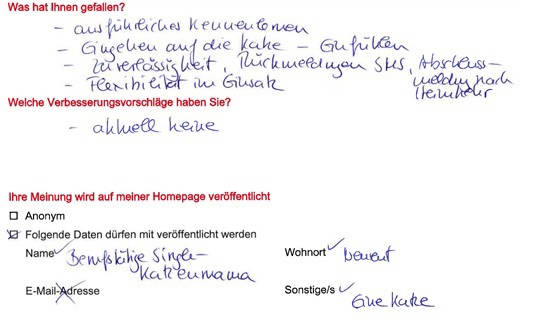 Was hat Ihnen gefallen?
- ausführliches Kennenlernen
- Eingehen auf die Katze - Einfühlen
- Zuverlässigkeit, Rückmeldungen SMS, Abschluss-
meldung nach
Heimkehr
- Flexibilität im Einsatz
Welche Verbesserungsvorschläge haben Sie?
- aktuell keine
Ihre Meinung wird auf meiner Homepage veröffentlicht
Anonym
Folgende Daten dürfen mit veröffentlicht werden
Name Berufstätige Single-
Katzenmama
Wohnort
E-Mail-Adresse
Sonstige/s Eine Katze